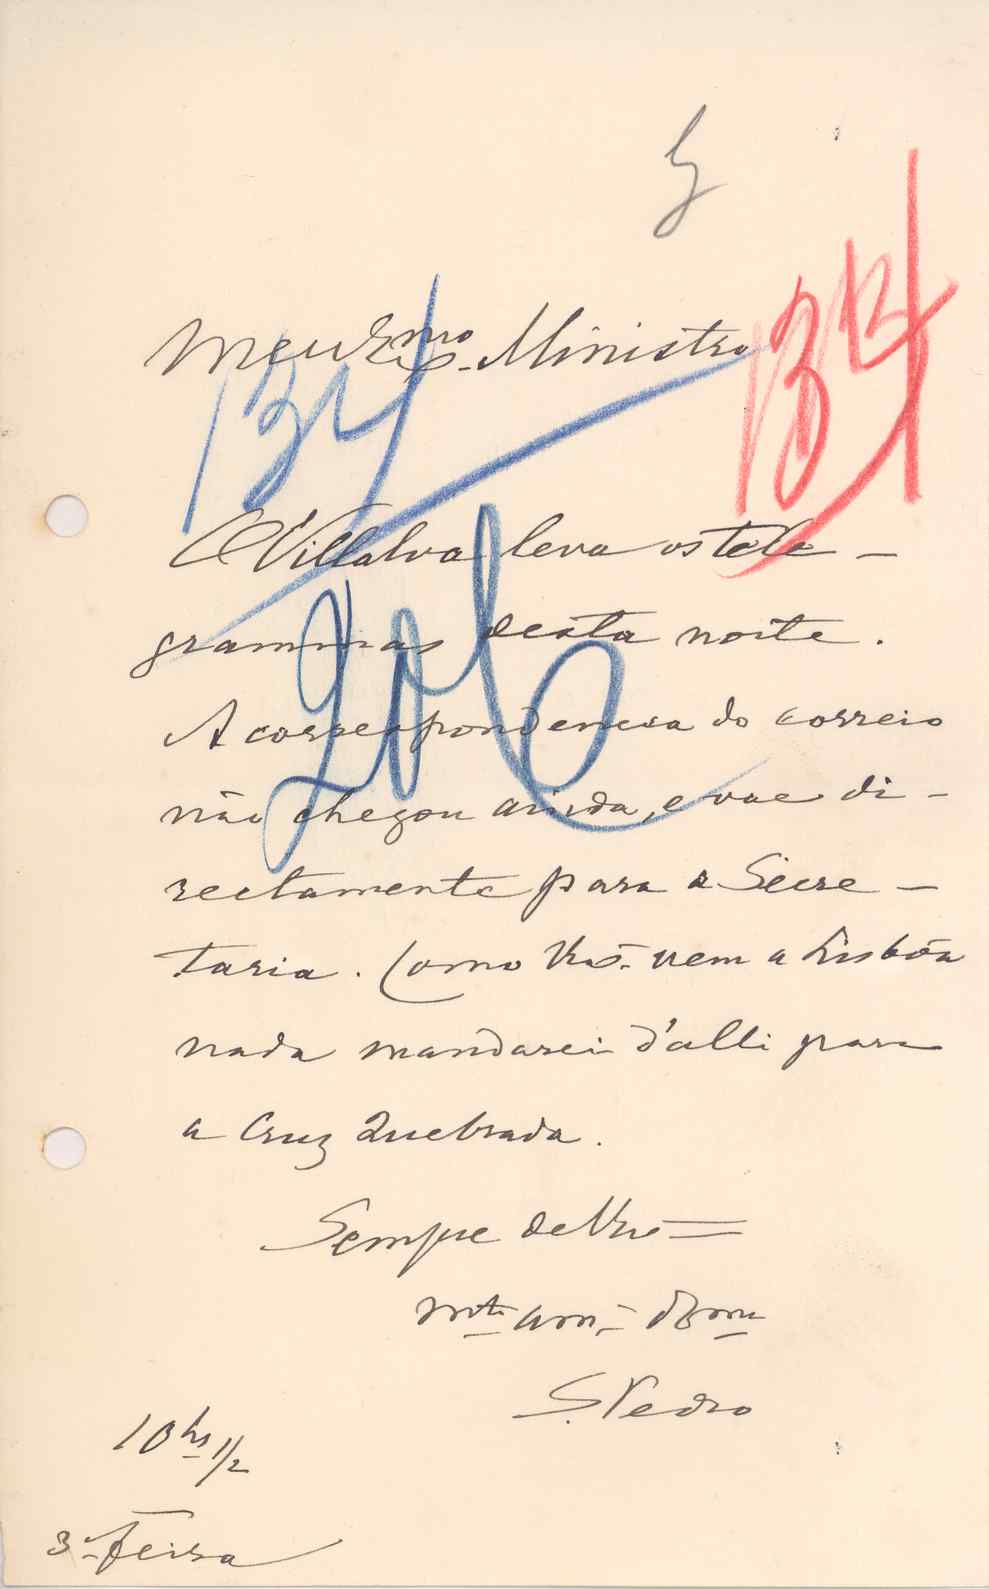 134
134
Meu Exmo. Ministro
O Villalva leva os tele-
grammas desta noite.
206
A correspondencia do correio
não chegou ainda, e vae di-
rectamente para a Secre-
taria. Como Vexa. vem a Lisbôa
nada mandarei d'alli para
a Cruz Quebrada.
Sempre de
mto amo
S. Pedro
10 hs 1/2
3ª feira